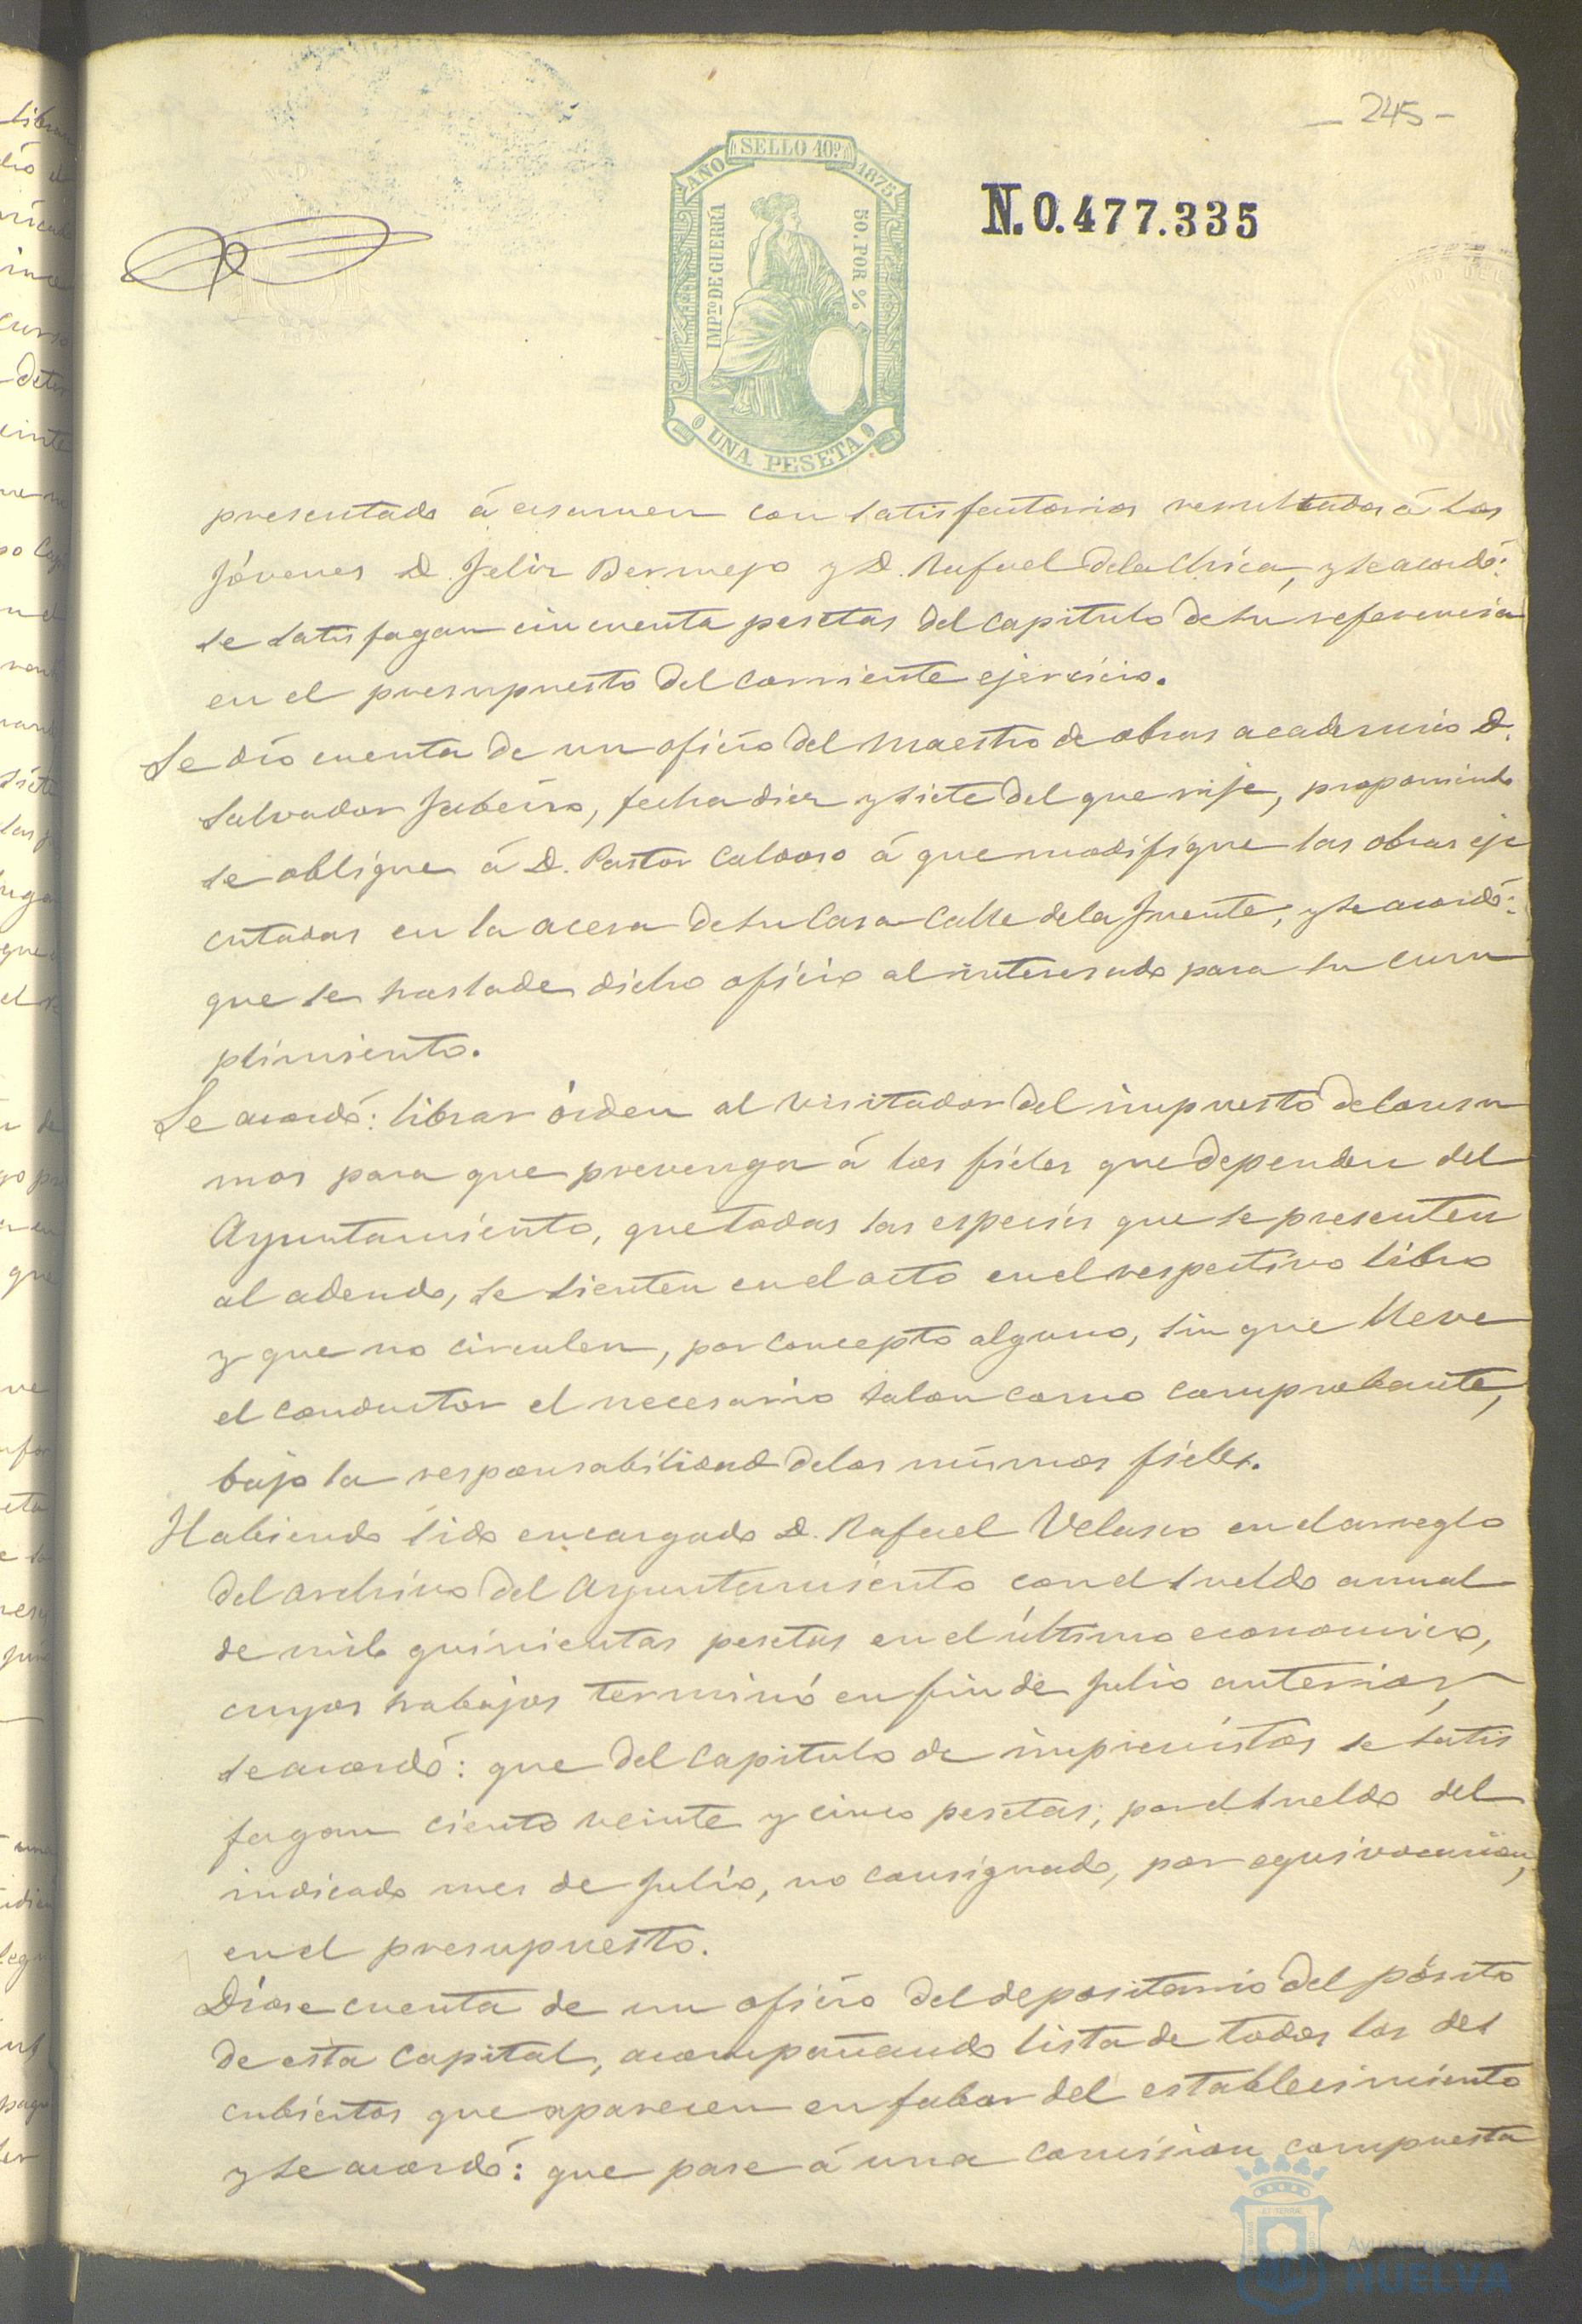 - 245 -
SELLO 10º
AÑO 1875
IMPTO DE GUERRA
50. POR %
UNA PESETA
N. 0.477.335
presentado á ecsamen con satisfactorios resultados á los
jóvenes D. Felix Bermejo y D. Rafael de la Chica, y se acordó:
se satisfagan cincuenta pesetas del capitulo de su referencia
en el presupuesto del corriente ejercicio.
Se dió cuenta de un oficio del Maestro de obras academico D.
Salvador, fecha diez y siete del que rije, proponiendo
se obligue á D. Pastor Caldoso á que modifique las obras eje
cutadas en la acera de su Casa Calle de la Fuente; y se acordó:
que se traslade dicho oficio al interesado para su cum
plimiento.
Se acordó: librar órden al Visitador del impuesto de Consu
mos para que prevenga á los fieles que dependen del
Ayuntamiento, que todas las especies que se presenten
al adeudo, se sienten en el acto en el respectivo libro
y que no circulen, por concepto alguno, sin que lleve
el conductor el necesario talon como comprobante,
bajo la responsabilidad de los mismos fieles.
Habiendo sido encargado D. Rafael Velasco en el arreglo
del archivo del Ayuntamiento con el sueldo anual
de mil quinientas pesetas en el último economico,
cuyos trabajos terminó en fin de Julio anterior,
se acordó: que del Capitulo de imprevistos se satis
fagan ciento veinte y cinco pesetas, por el sueldo del
indicado mes de Julio, no consignado, por equivocacion,
en el presupuesto.
Diose cuenta de un oficio del depositario del pósito
de esta Capital, acompañando lista de todos los des
cubiertos que aparecen en fabor del establecimiento
y se acordó: que pase á una Comision compuesta
Ayuntamiento de
HUELVA